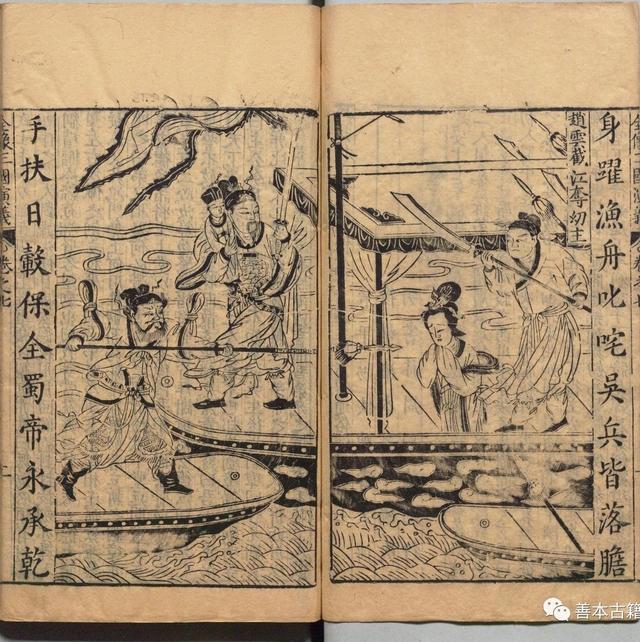 身躍漁舟叱咤吳兵皆落膽
趙雲截江奪幼主
手扶日轂保全蜀帝永承乾
全像三國演義
卷之七
善本古籍